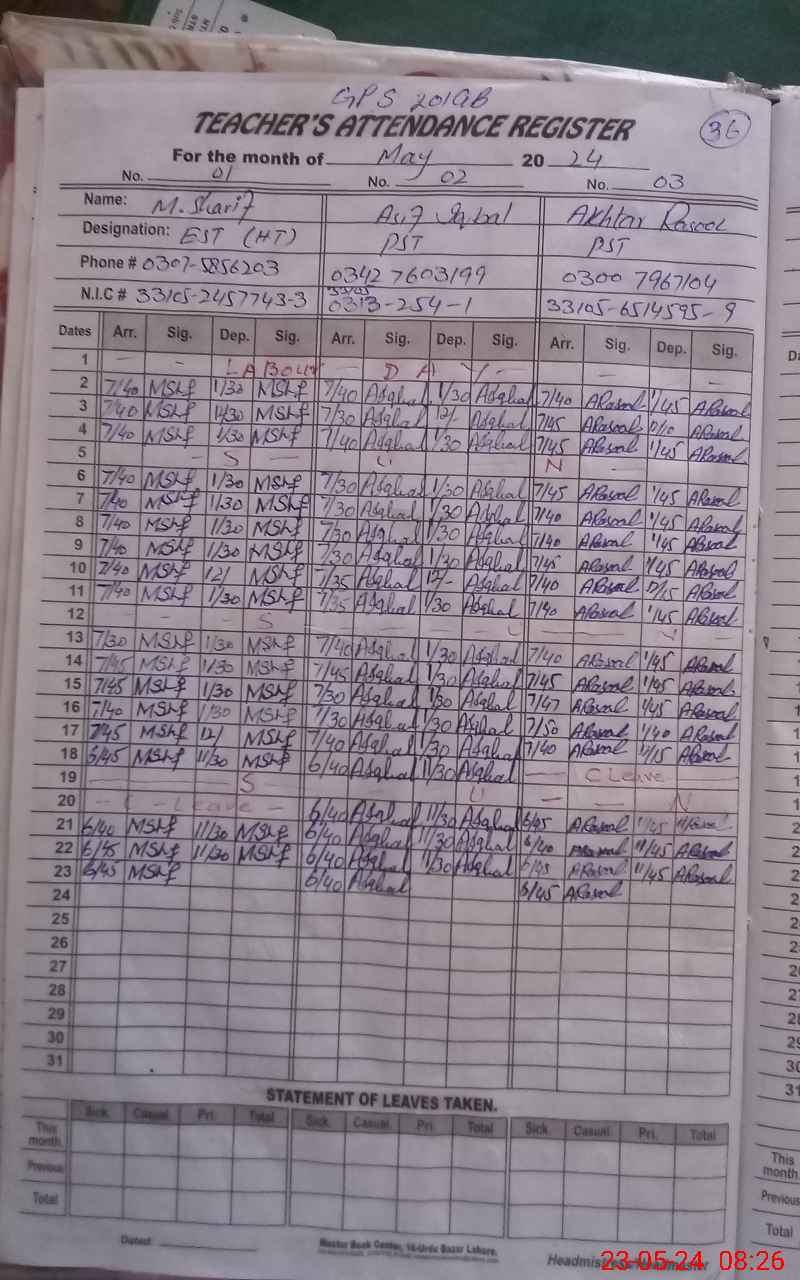 GPS 201GB
TEACHER'S ATTENDANCE REGISTER 36
For the month of May 2024
No. 01 No. 02 No. 03
Name: M. Sharif Asif Iqbal Akhtar Rasool
Designation: EST (HT) PST PST
Phone # 0307-5856203 0342 7603199 0300 7967104
33105
N.I.C # 33105-2457743-3 0313-254-1 33105-6514595-9
Dates Arr. Sig. Dep. Sig. Arr. Sig. Dep. Sig. Arr. Sig. Dep. Sig.
1 LABOUR DAY
2 7/40 MShf 1/30 MShf 7/40 Asqbal 1/30 Asqbal 7/40 ARasool 1/45 ARasool
3 7/40 MShf 11/30 MShf 7/30 Asqbal 12/- Asqbal 7/45 ARasool ARasool
4 7/40 MShf 1/30 MShf 7/40 Asqbal 1/30 Asqbal 7/45 ARasool 1/45 ARasool
5 S U N
6 7/40 MShf 1/30 MShf 7/30 Asqbal 1/30 Asqbal 7/45 ARasool 1/45 ARasool
7 7/40 MShf 1/30 MShf 7/30 Asqbal 1/30 Asqbal 7/40 ARasool 1/45 ARasool
8 7/40 MShf 1/30 MShf 7/30 Asqbal 1/30 Asqbal 7/40 ARasool 1/45 ARasool
9 7/40 MShf 1/30 MShf 7/30 Asqbal 1/30 Asqbal 7/45 ARasool 1/45 ARasool
10 7/40 MShf 12/ MShf 7/35 Asqbal 12/- Asqbal 7/40 ARasool 12/15 ARasool
11 7/40 MShf 1/30 MShf 7/35 Asqbal 1/30 Asqbal 7/40 ARasool 1/45 ARasool
12 S U N
13 7/30 MShf 1/30 MShf 7/40 Asqbal 1/30 Asqbal 7/40 ARasool 1/45 ARasool
14 7/45 MShf 1/30 MShf 7/45 Asqbal 1/30 Asqbal 7/45 ARasool 1/45 ARasool
15 7/45 MShf 1/30 MShf 7/30 Asqbal 1/30 Asqbal 7/47 ARasool 1/45 ARasool
16 7/40 MShf 1/30 MShf 7/30 Asqbal 1/30 Asqbal 7/50 ARasool 1/40 ARasool
17 7/45 MShf 12/ MShf 7/40 Asqbal 1/30 Asqbal 7/40 ARasool 12/15 ARasool
18 6/45 MShf 11/30 MShf 6/40 Asqbal 11/30 Asqbal C Leave
19 S U N
20 C-Leave 6/40 Asqbal 11/30 Asqbal 6/45 ARasool 11/45 ARasool
21 6/40 MShf 11/30 MShf 6/40 Asqbal 11/30 Asqbal 6/40 ARasool 11/45 ARasool
22 6/45 MShf 11/30 MShf 6/40 Asqbal 11/30 Asqbal 6/45 ARasool 11/45 ARasool
23 6/45 MShf 6/40 Asqbal 6/45 ARasool
24
25
26
27
28
29
30
31
STATEMENT OF LEAVES TAKEN.
Sick. Casual. Pri. Total Sick. Casual. Pri. Total Sick. Casual. Pri. Total
This month
Previous
Total
Dated:
Master Book Center, 16-Urdu Bazar Lahore.
Headmistress/Headmaster
23-05-24 08:26
This month
Previous
Total